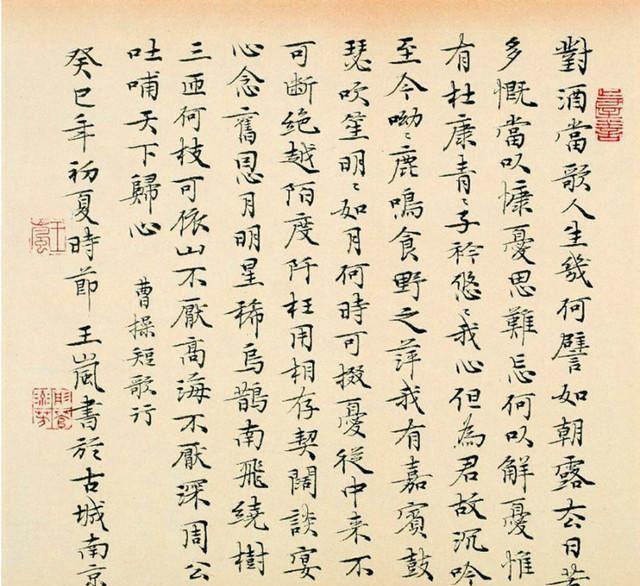 對酒當歌人生幾何譬如朝露去日苦
多慨當以慷憂思難忘何以解憂惟
有杜康青〻子衿悠〻我心但為君故沉吟
至今呦〻鹿鳴食野之萍我有嘉賓鼓
瑟吹笙明〻如月何時可掇憂從中来不
可斷絕越陌度阡枉用相存契闊談宴
心念舊恩月明星稀烏鵲南飛繞樹
三匝何枝可依山不厭高海不厭深周公
吐哺天下歸心 曹操短歌行
癸巳年初夏時節 王嵐書於古城南京
王嵐